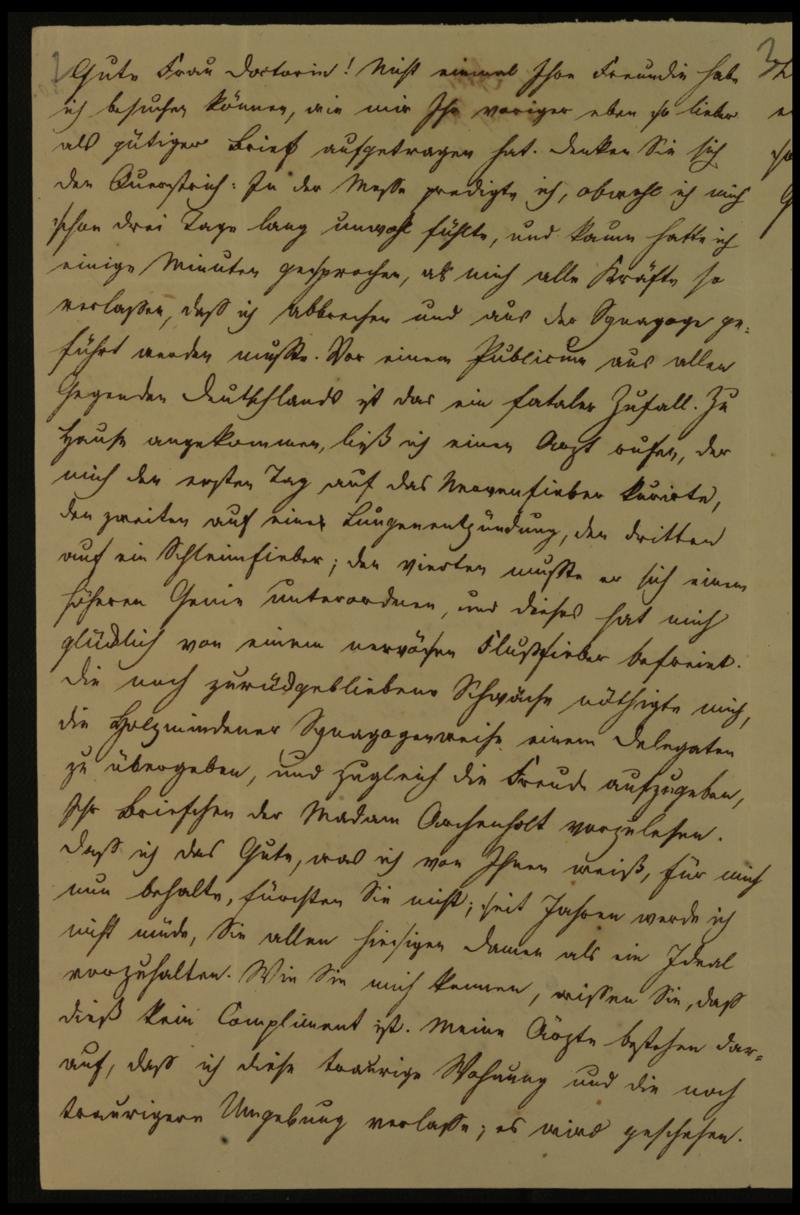 Gute Frau Doctorin! Nicht einmal Ihre Freundin habe
ich besuchen können, wie mir Ihr voriger eben so lieber
als gütiger Brief aufgetragen hat. Denken Sie sich
den Querstrich: In der Messe predigte ich, obwohl ich mich
schon drei Tage lang unwohl fühlte, und kaum hatte ich
einige Minuten gesprochen, als mich alle Kräfte so
verlassen, daß ich abbrechen und aus der Synagoge ge-
führt werden mußte. Vor einem Publicum aus allen
Gegenden Deutschlands ist das ein fataler Zufall. Zu
Hause angekommen, ließ ich einen Arzt rufen, der
mich den ersten Tag auf das Nervenfieber kurirte,
den zweiten auf eine Lungenentzündung, den dritten
auf ein Schleimfieber; den vierten mußte er sich einem
höheren Genie unterordnen, und dieses hat mich
glücklich von einem nervösen Flußfieber befreiet.
Die noch zurückgebliebene Schwäche nöthigte mich,
die Holzmindener Synagogenweihe einem Delegaten
zu übergeben, und zugleich die Freude aufzugeben,
Ihr Briefchen der Madam Archenholt vorzulesen.
Daß ich das Gute, was ich von Ihnen weiß, für mich
nun behalte, fürchten Sie nicht; seit Jahren werde ich
nicht müde, Sie allen hiesigen Damen als ein Ideal
vorzuhalten. Wie Sie mich kennen, wissen Sie, daß
dieß kein Compliment ist. Meine Ärzte bestehen dar-
auf, daß ich diese traurige Wohnung und die noch
traurigere Umgebung verlasse; es wird geschehen.